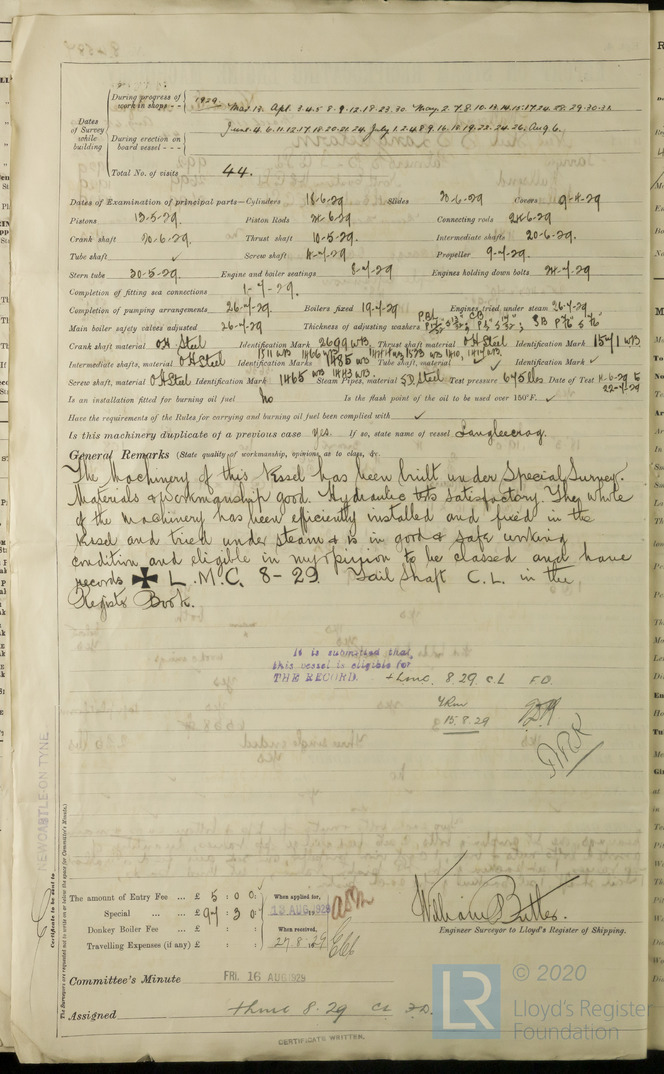 During progress of work in shops - - 1929. Mar. 13. Apl. 3.4.5 8.9.12.18.23.30. May. 2.7.8.10.13.14.15.17.24.28.29.30.31.
Dates of Survey while building
During erection on board vessel - - - June. 4.6.11.12.17.18.20.21.24. July 1.2.4.8.9.16.18.19.22.24.26. Aug 6.
Total No. of visits 44.
Dates of Examination of principal parts—Cylinders 18-6-29 Slides 20-6-29 Covers
Pistons 13-5-29. Piston Rods 24-6-29 Connecting rods 24-6-29
Crank shaft 20-6-29. Thrust shaft 10-5-29. Intermediate shafts 20-6-29.
Tube shaft ✓ Screw shaft 4-7-29. Propeller 9-7-29.
Stern tube 30-5-29 Engine and boiler seatings 8-7-29 Engines holding down bolts 24-7-29
Completion of fitting sea connections 1-7-29.
Completion of pumping arrangements 26-7-29. Boilers fixed 19-7-29 Engines tried under steam 26-7-29
Main boiler safety valves adjusted 26-7-29 Thickness of adjusting washers
Crank shaft material O H Steel Identification Mark 2699 WB. Thrust shaft material O H Steel Identification Mark 1571 WB.
Intermediate shafts, material O H Steel Identification Marks Tube shaft, material ✓ Identification Mark ✓
Screw shaft, material O H Steel Identification Mark 1465 WB. Steam Pipes, material S D Steel Test pressure 675 lbs Date of Test 22-7-29
Is an installation fitted for burning oil fuel No Is the flash point of the oil to be used over 150°F. ✓
Have the requirements of the Rules for carrying and burning oil fuel been complied with ✓
Is this machinery duplicate of a previous case Yes. If so, state name of vessel Langleecrag.
General Remarks (State quality of workmanship, opinions as to class, &c.
The Machinery of this Vessel has been built under Special Survey.
Materials & Workmanship good. Hydraulic tests satisfactory. The whole
of the Machinery has been efficiently installed and fixed in the
Vessel and tried under steam & is in good & safe working
condition and eligible in my opinion to be classed and have
records ✠ L.M.C. 8-29. Tail Shaft C.L. in the
Register Book.
It is submitted that
this vessel is eligible for
THE RECORD. + LMC. 8.29. C L F.D.
15.8.29
NEWCASTLE-ON-TYNE
Certificate to be sent to
The Surveyors are requested not to write on or below the space for Committee's Minute.
The amount of Entry Fee ... £ 5 : 0 : 0. When applied for,
Special ... ... £ 97 : 3 : 0 13 AUG 1929
Donkey Boiler Fee ... £ : : When received,
Travelling Expenses (if any) £ : : 27.8.29
William Butler.
Engineer Surveyor to Lloyd's Register of Shipping.
Committee's Minute FRI. 16 AUG 1929
Assigned + LMC 8.29 CL F.D.
CERTIFICATE WRITTEN.
LR © 2020
Lloyd's Register
Foundation